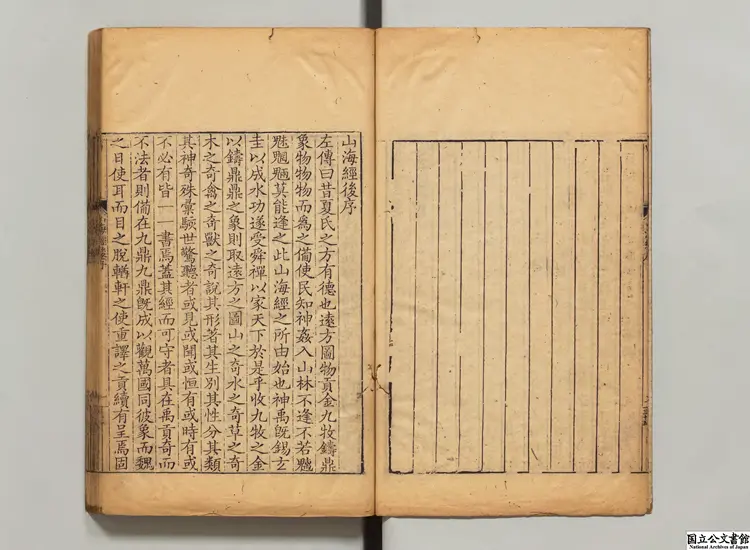 山海經後序
左傳曰昔夏氏之方有德也遠方圖物貢金九牧鑄鼎
象物物物而為之備使民知神姦入山林不逢不若魑
魅魍魎莫能逢之此山海經之所由始也神禹旣錫玄
圭以成水功遂受舜禪以家天下於是乎收九牧之金
以鑄鼎鼎之象則取遠方之圖山之奇水之奇草之奇
木之奇禽之奇獸之奇說其形著其生別其性分其類
其神奇殊彙駭世驚聽者或見或聞或恒有或時有或
不必有皆一一書焉蓋其經而可守者具在禹貢奇而
不法者則備在九鼎九鼎旣成以觀萬國同彼象而魏
之日使耳而目之脫輶軒之使重譯之貢續有呈焉固
国立公文書館
National Archives of Japan